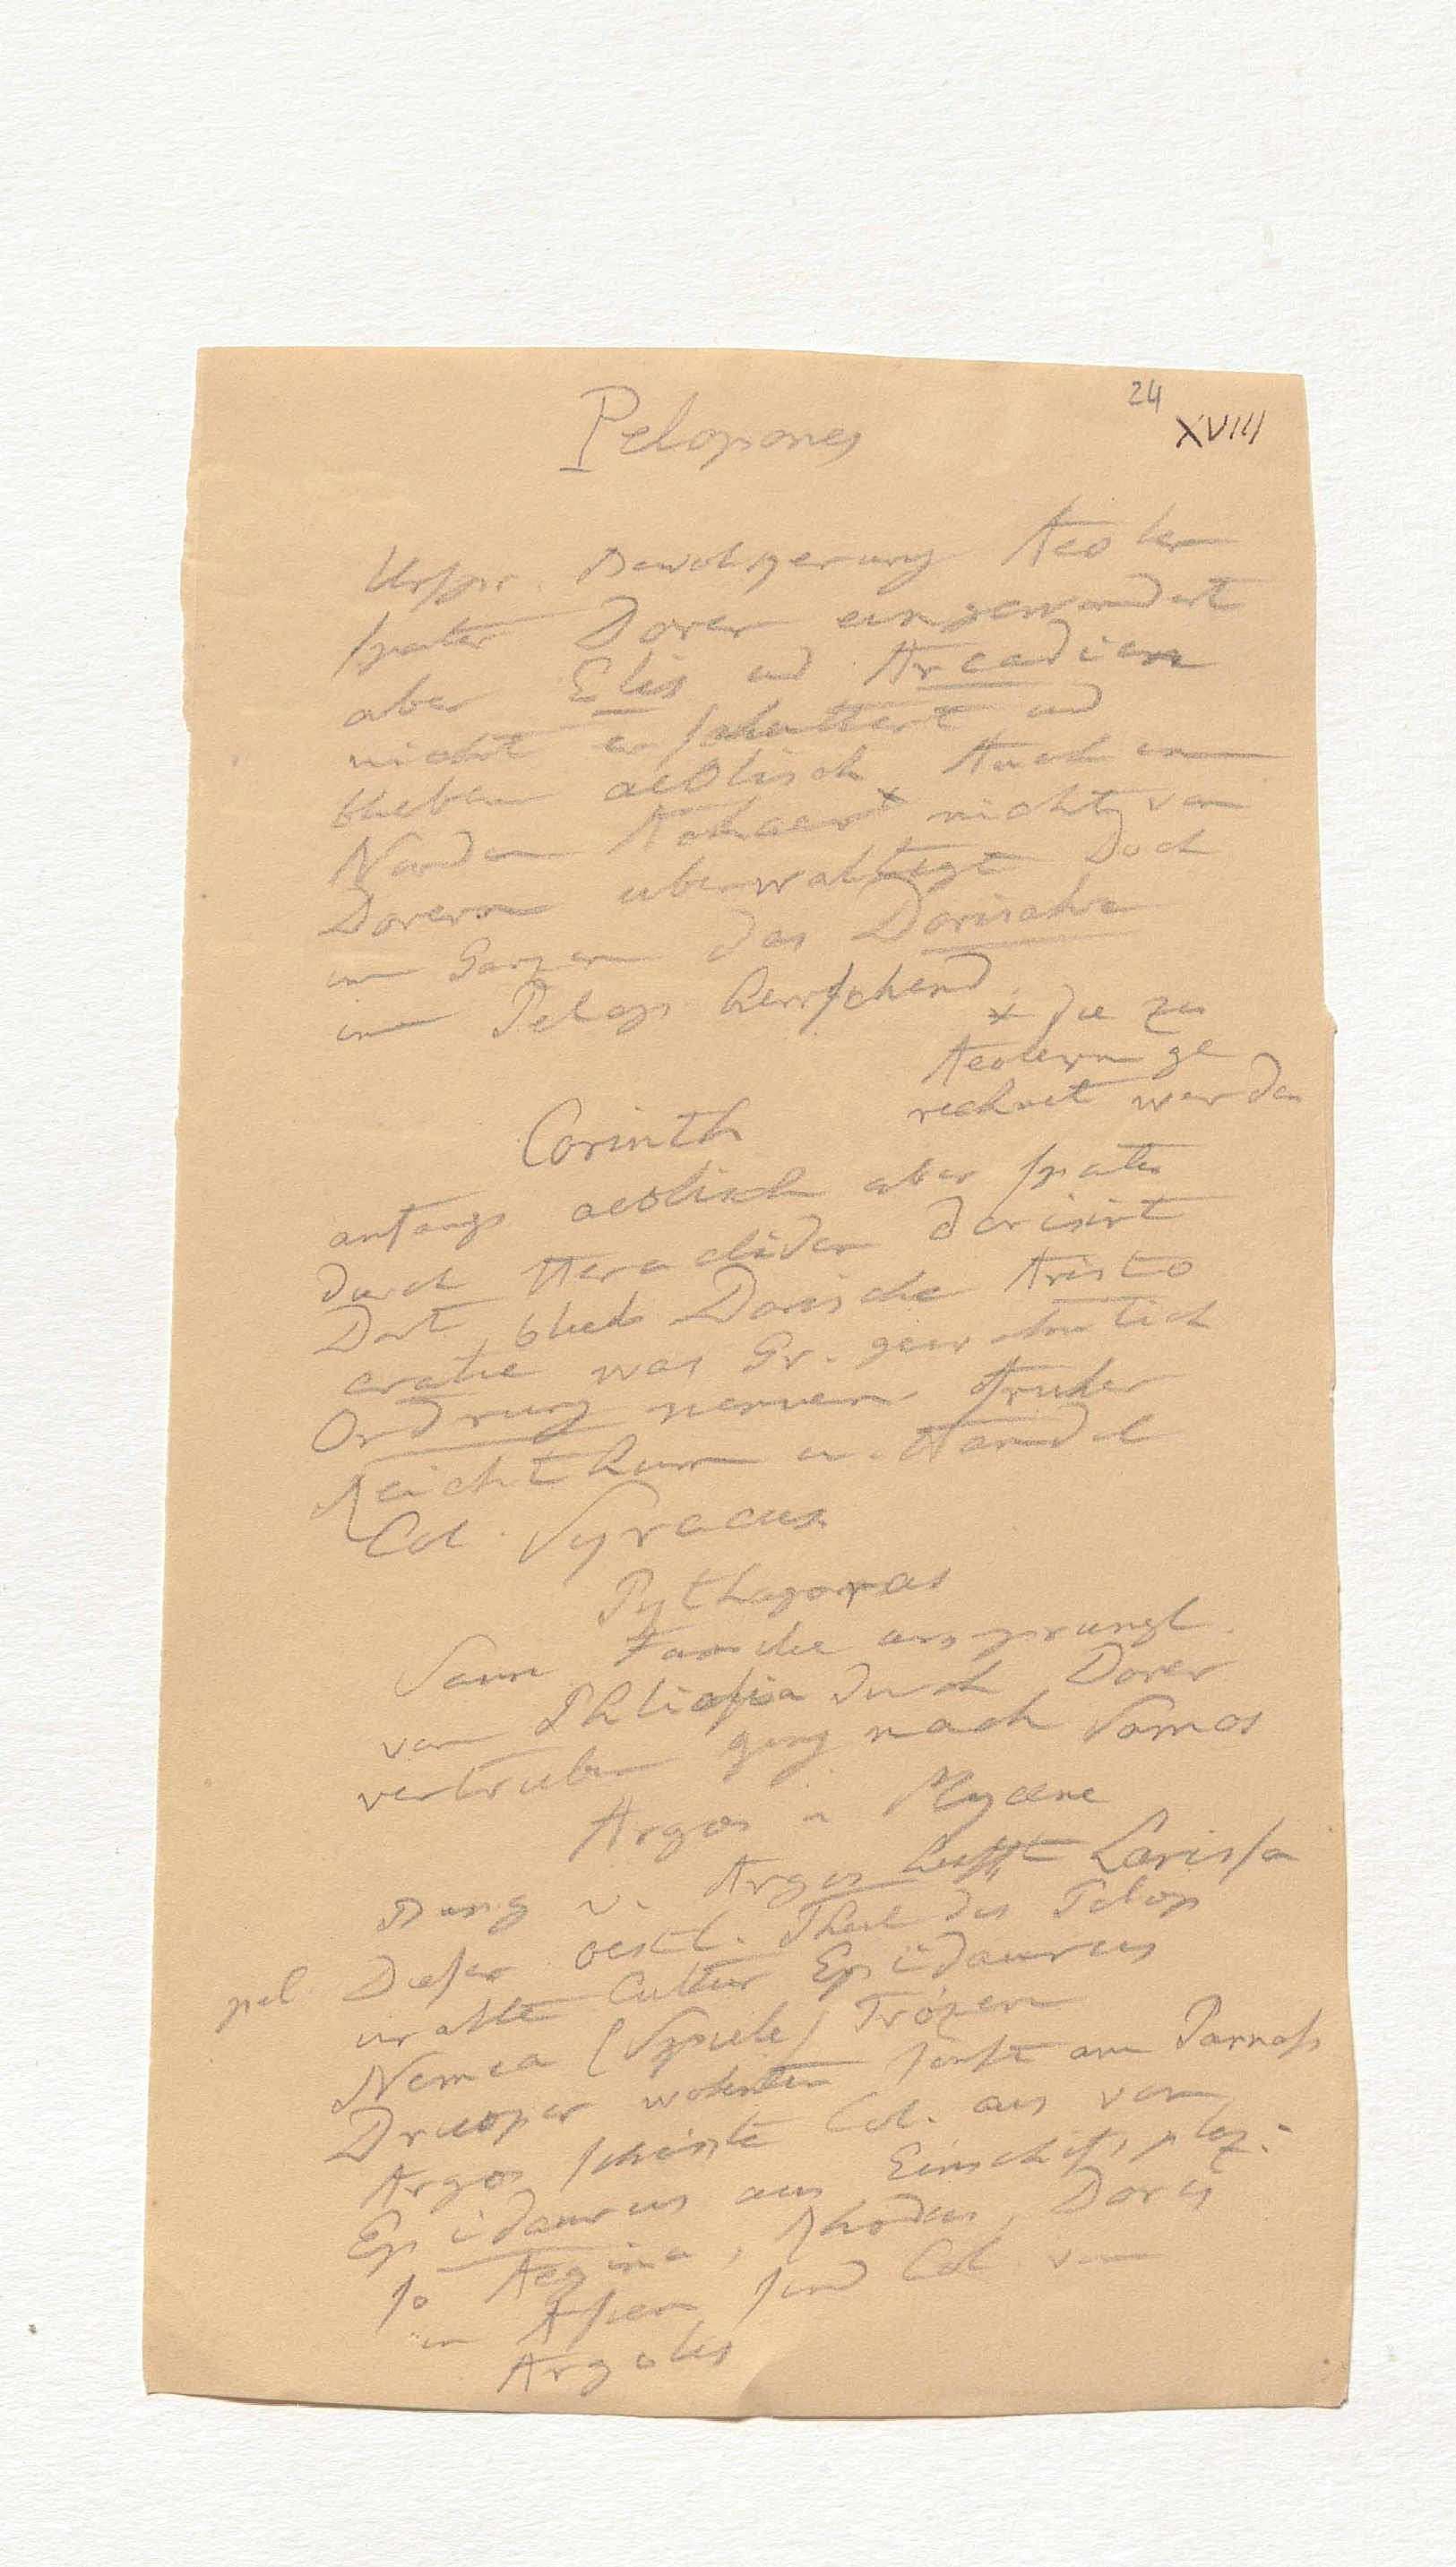 24
XVIII
Pelopones
Urspr. Bewohgerung Aeoler
später Dorer eingewandert
aber Elis und Arcadien
nicht erschüttert und
blieben aeolisch Auch im
Norden Achaer x nicht von
Dorern uberwaltigt Doch
im Ganzen das Dorische
im Pelop herrschend.
x die zu
Aeolern ge
rechnet werden
Corinth
anfangs aeolisch aber spater
durch Heracliden dorisirt
Dort blieb Dorische Aristo
cratie was Gr. gewohnlich
Ordnung nennen fruher
Reichthum u. Handel
Col. Syracus
Pythagoras
Seine Familie ursprungl.
von Phliasia durch Dorer
vertrieben ging nach Samos
Argos u Mycene
Burg v. Argos heisst Larissa
Dieser oestl. Theil des Pelop
pel. uralte Cultur Epidaurus
Nemea (Spiele) Trözen
Dryoper wohnten sonst am Parnass
Argos schickte Col. aus von
Epidaurus aus Einschifsplaz:
so Aegina, Rhodus, Doris
in Asien sind Col. von
Argolis